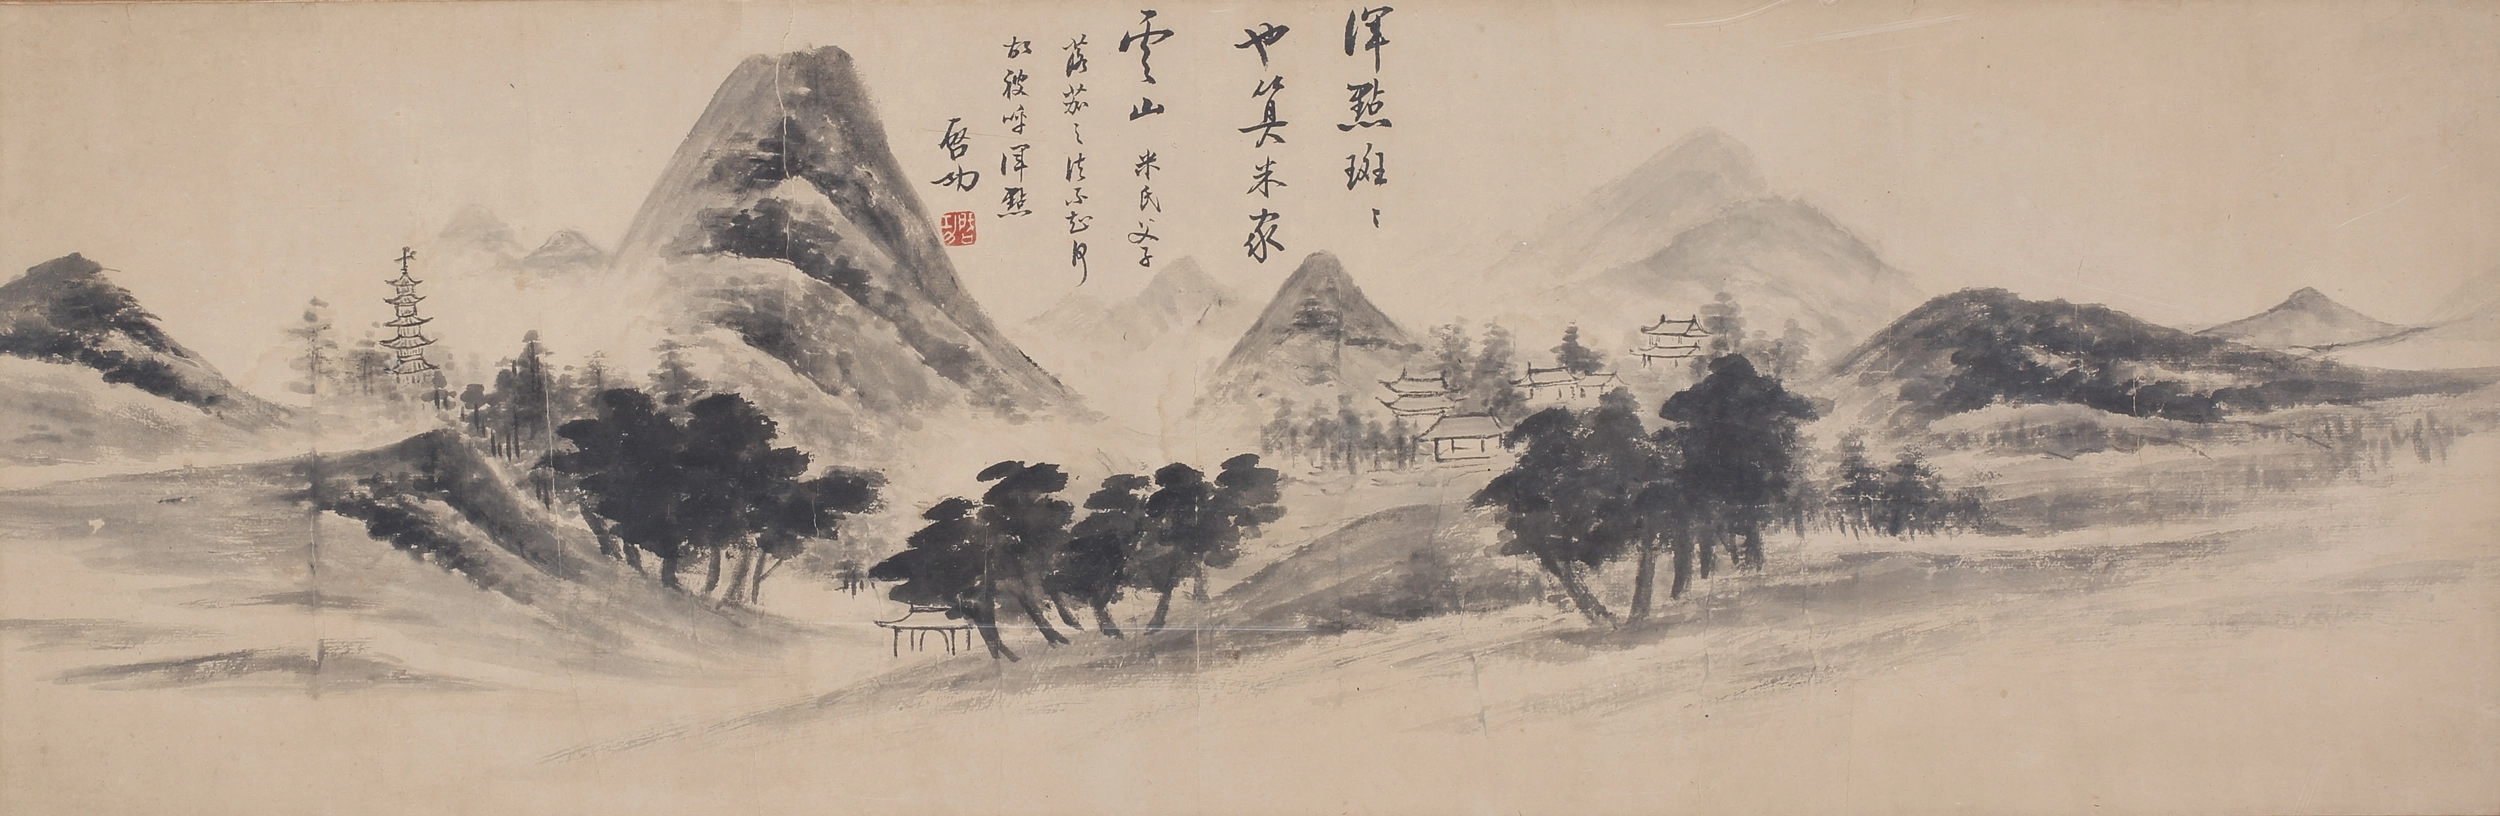 渾點斑〻
也算米家
雲山 米氏父子
落茄之法不知何
故被呼渾點
啓功
啓功